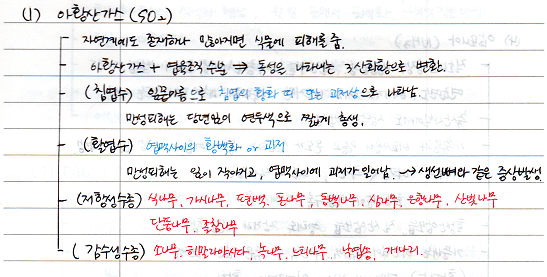 (1) 아황산가스 (SO₂)
- 자연계에도 존재하나 많아지면 식물에 피해를 줌.
- 아황산가스 + 엽육조직 수분 ⇒ 독성을 나타내는 3산화황으로 변환.
- (침엽수) 잎끝마름으로 침엽의 황화 띠 또는 괴저상으로 나타남.
만성피해는 당년잎이 연두색으로 짧게 총생.
- (활엽수) 엽맥사이의 황백화 or 괴저
만성피해는 잎이 작아지고, 엽맥사이에 괴저가 일어남. → 생선뼈와 같은 증상발생
- (저항성수종) 식나무, 가시나무, 편백, 돈나무, 동백나무, 삼나무, 은행나무, 산벚나무
단풍나무, 졸참나무
- (감수성수종) 소나무, 히말라야시다, 녹나무, 느티나무, 낙엽송, 개나리.